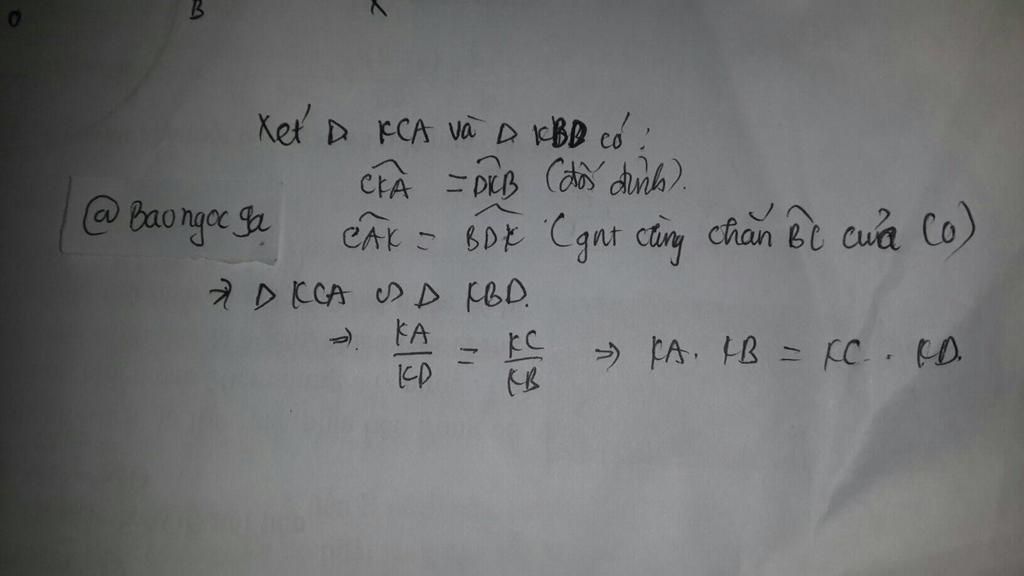 O B K
Xét Δ KCA và Δ KBD có :
$\widehat{CKA}$ = $\widehat{DKB}$ (đối đỉnh).
@Baongocga
$\widehat{CAK}$ = $\widehat{BDK}$ (gnt cùng chắn $\widehat{BC}$ của (O)
=> Δ KCA ∽ Δ KBD.
=> $\frac{KA}{KD}$ = $\frac{KC}{KB}$ => KA . KB = KC . KD.